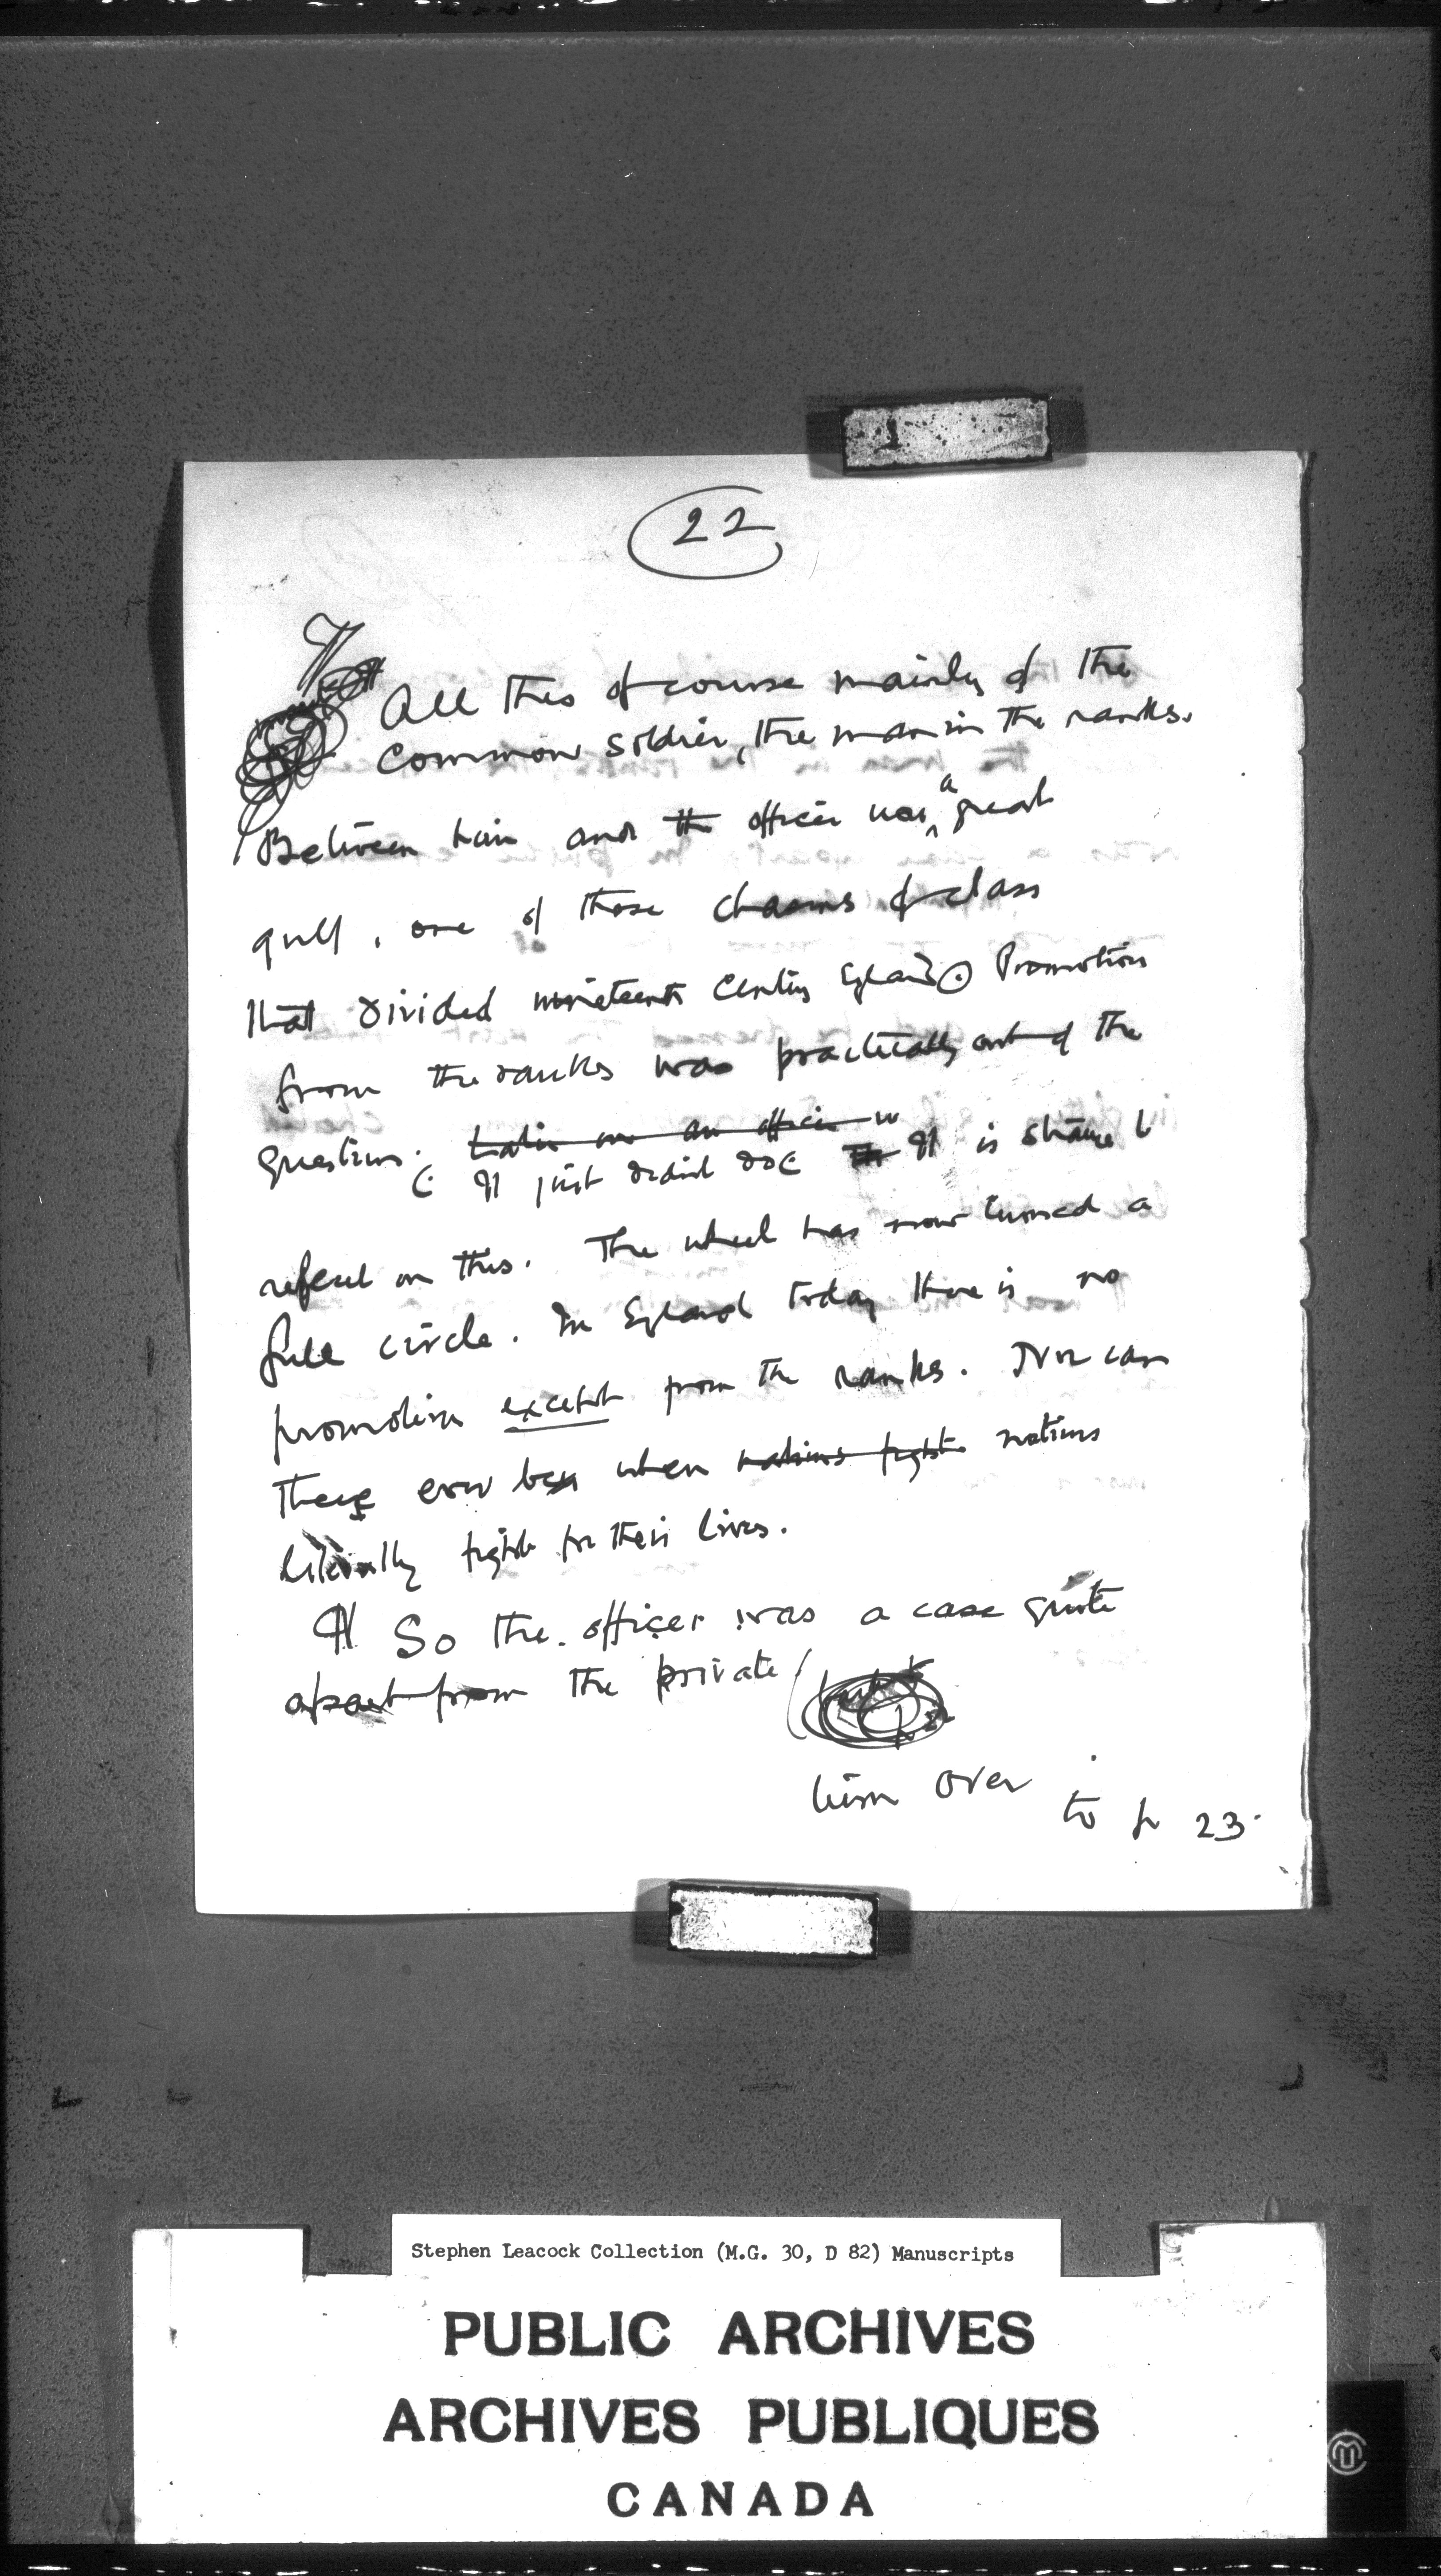 22
All this of course mainly of the
common soldier, the man in the ranks.
Between him and the officer was a great
gulf, one of those chasms of class
that divided nineteenth century England. Promotion
from the ranks was practically out of the
question.
It just didn't do. It is strange to
reflect on this. The wheel has now turned a
full circle. In England today there is no
promotion except from the ranks. Nor can
there ever be when nations fight nations
literally fight for their lives.
¶ So the officer was a case quite
apart from the private
turn over
to p 23.
Stephen Leacock Collection (M.G. 30, D 82) Manuscripts
PUBLIC ARCHIVES
ARCHIVES PUBLIQUES
CANADA